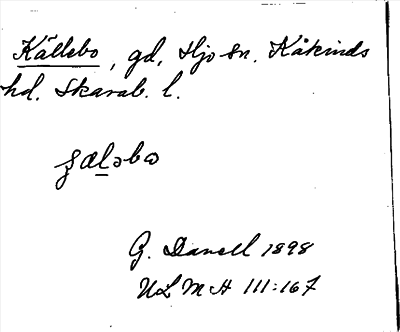 Källebo, gd, Hjo sn. Kåkinds
hd. Skarab. l.
G. Danell 1898
ULMA 111:167